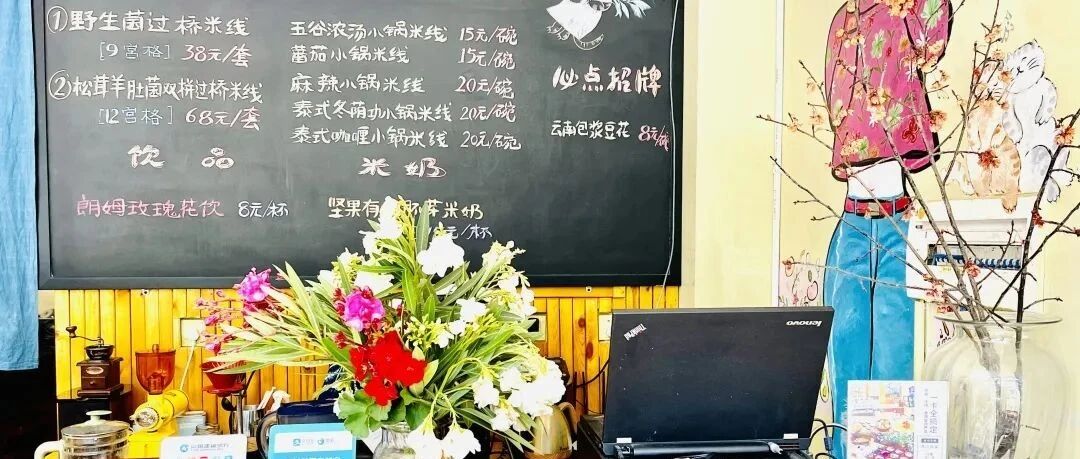 ①野生菌过桥米线
[9宫格] 38元/套
②松茸羊肚菌双拼过桥米线
[12宫格] 68元/套
五谷浓汤小锅米线 15元/碗
蕃茄小锅米线 15元/碗
麻辣小锅米线 20元/碗
泰式冬荫功小锅米线 20元/碗
泰式咖喱小锅米线 20元/碗
必点招牌
云南包浆豆花 8元/碗
饮品
朗姆玫瑰花饮 8元/杯
米奶
坚果有 芽米奶
元/杯
ThinkPad
lenovo
一卡全搞定